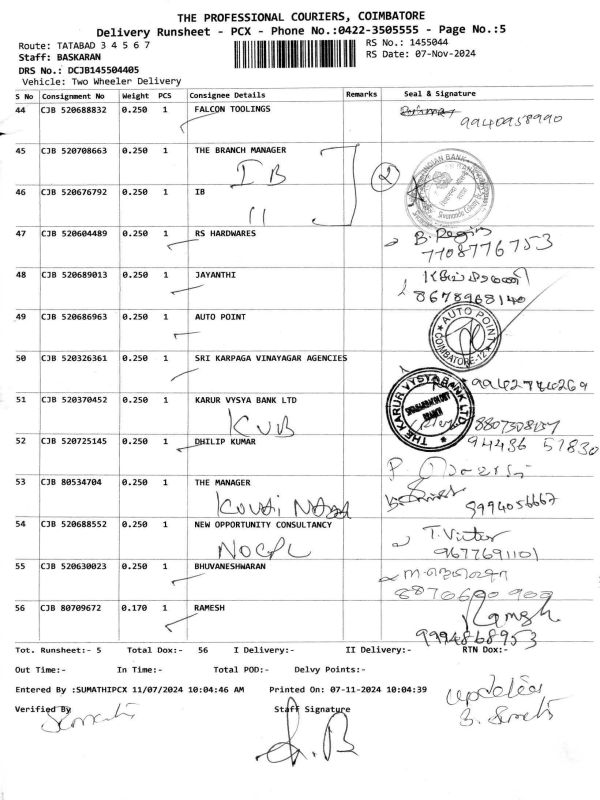 THE PROFESSIONAL COURIERS, COIMBATORE
Delivery Runsheet - PCX - Phone No.:0422-3505555 - Page No.:5
Route: TATABAD 3 4 5 6 7 RS No.: 1455044
Staff: BASKARAN RS Date: 07-Nov-2024
DRS No.: DCJB145504405
Vehicle: Two Wheeler Delivery
S No Consignment No Weight PCS Consignee Details Remarks Seal & Signature
44 CJB 520688832 0.250 1 FALCON TOOLINGS
9940958990
45 CJB 520708663 0.250 1 THE BRANCH MANAGER
IB 2
INDIAN BANK
46 CJB 520676792 0.250 1 IB
11
47 CJB 520604489 0.250 1 RS HARDWARES B. Regin
7708776753
48 CJB 520689013 0.250 1 JAYANTHI
8678968140
49 CJB 520686963 0.250 1 AUTO POINT
AUTO POINT COIMBATORE-12
50 CJB 520326361 0.250 1 SRI KARPAGA VINAYAGAR AGENCIES
51 CJB 520370452 0.250 1 KARUR VYSYA BANK LTD
THE KARUR VYSYA BANK LTD
KVB
52 CJB 520725145 0.250 1 DHILIP KUMAR 94436 51830
53 CJB 80534704 0.250 1 THE MANAGER
9994056667
54 CJB 520688552 0.250 1 NEW OPPORTUNITY CONSULTANCY T. Victor
NOCPL 9677691101
55 CJB 520630023 0.250 1 BHUVANESHWARAN
8870690 908
56 CJB 80709672 0.170 1 RAMESH Ramesh
9994868953
Tot. Runsheet:- 5 Total Dox:- 56 I Delivery:- II Delivery:- RTN Dox:-
Out Time:- In Time:- Total POD:- Delvy Points:-
Entered By :SUMATHIPCX 11/07/2024 10:04:46 AM Printed On: 07-11-2024 10:04:39
Verified By Staff Signature
updated